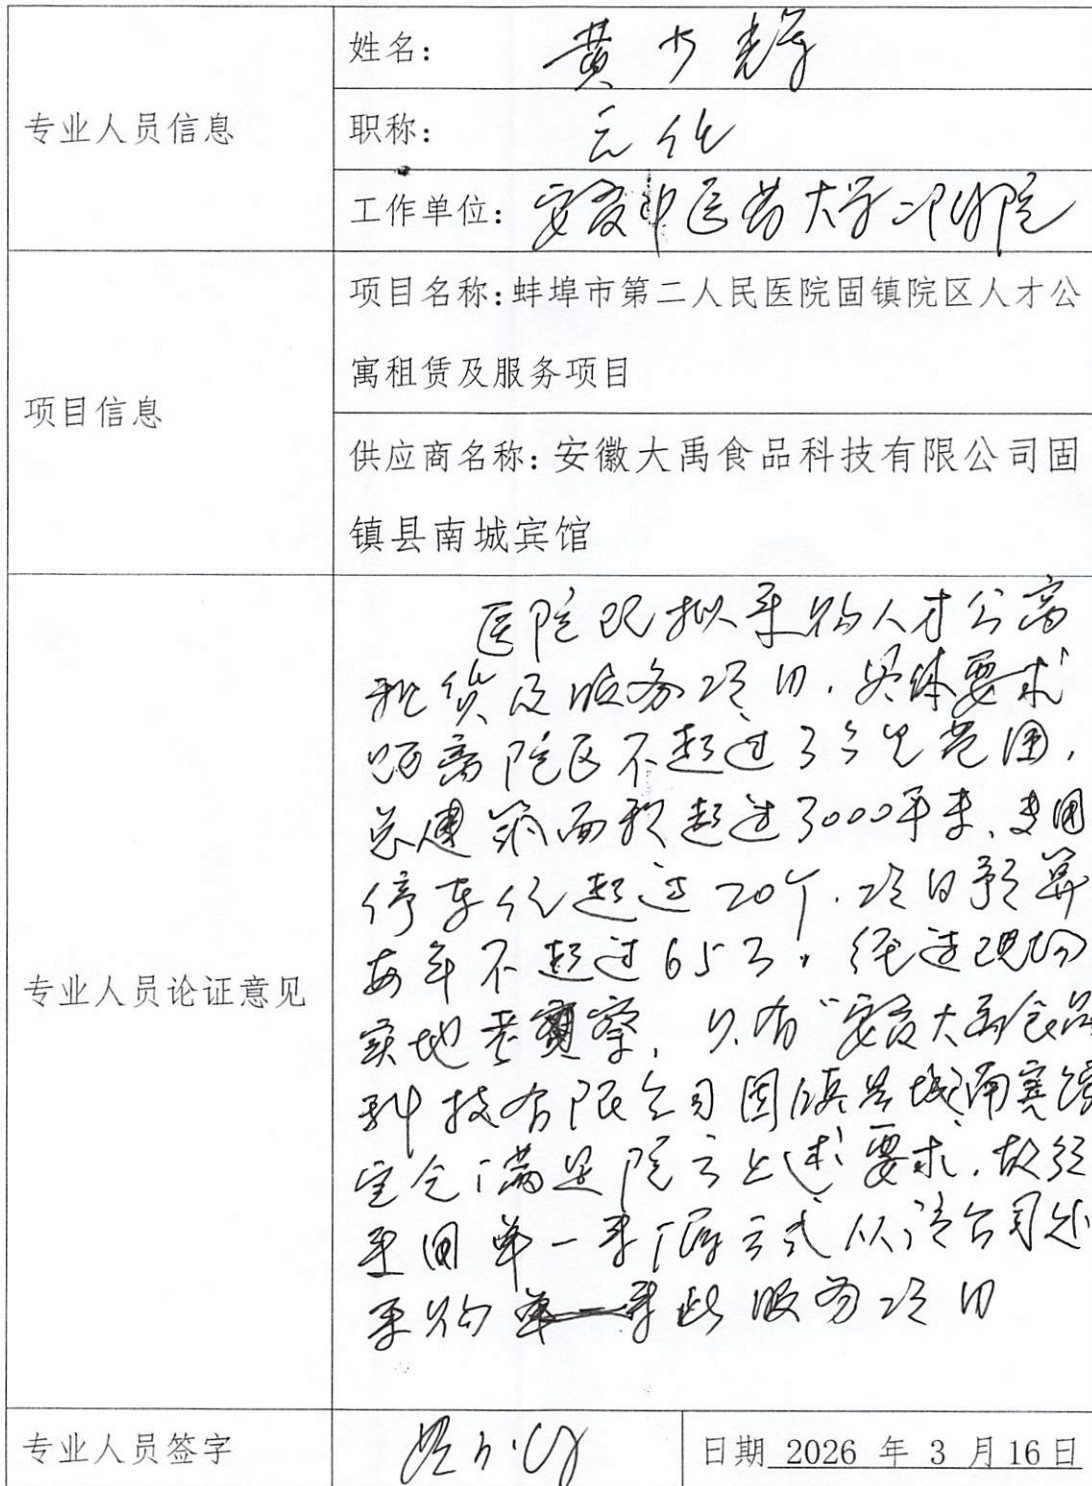 专业人员信息
姓名: 黄少辉
职称:
工作单位: 安徽中医药大学二附院
项目信息
项目名称:蚌埠市第二人民医院固镇院区人才公
寓租赁及服务项目
供应商名称: 安徽大禹食品科技有限公司固
镇县南城宾馆
专业人员论证意见
医院现拟采购人才公寓
租赁及服务项目,具体要求
距离院区不超过3公里范围,
总建筑面积超过3000平米,专用
停车位超过20个,项目预算
每年不超过65万,经过现场
实地考察,只有“安徽大禹食品
科技有限公司固镇县城南宾馆
完全满足院方上述要求,故须
采用单一来源方式从该公司处
采购此服务项目
专业人员签字
日期 2026 年 3 月16日